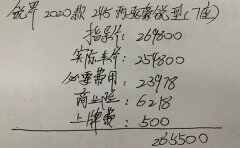 锐界 2020款 245 两驱豪锐型(7座)
指导价: 269800
实际车价: 254800
必要费用: 23978
商业险: 6218
上牌费: 500
265500